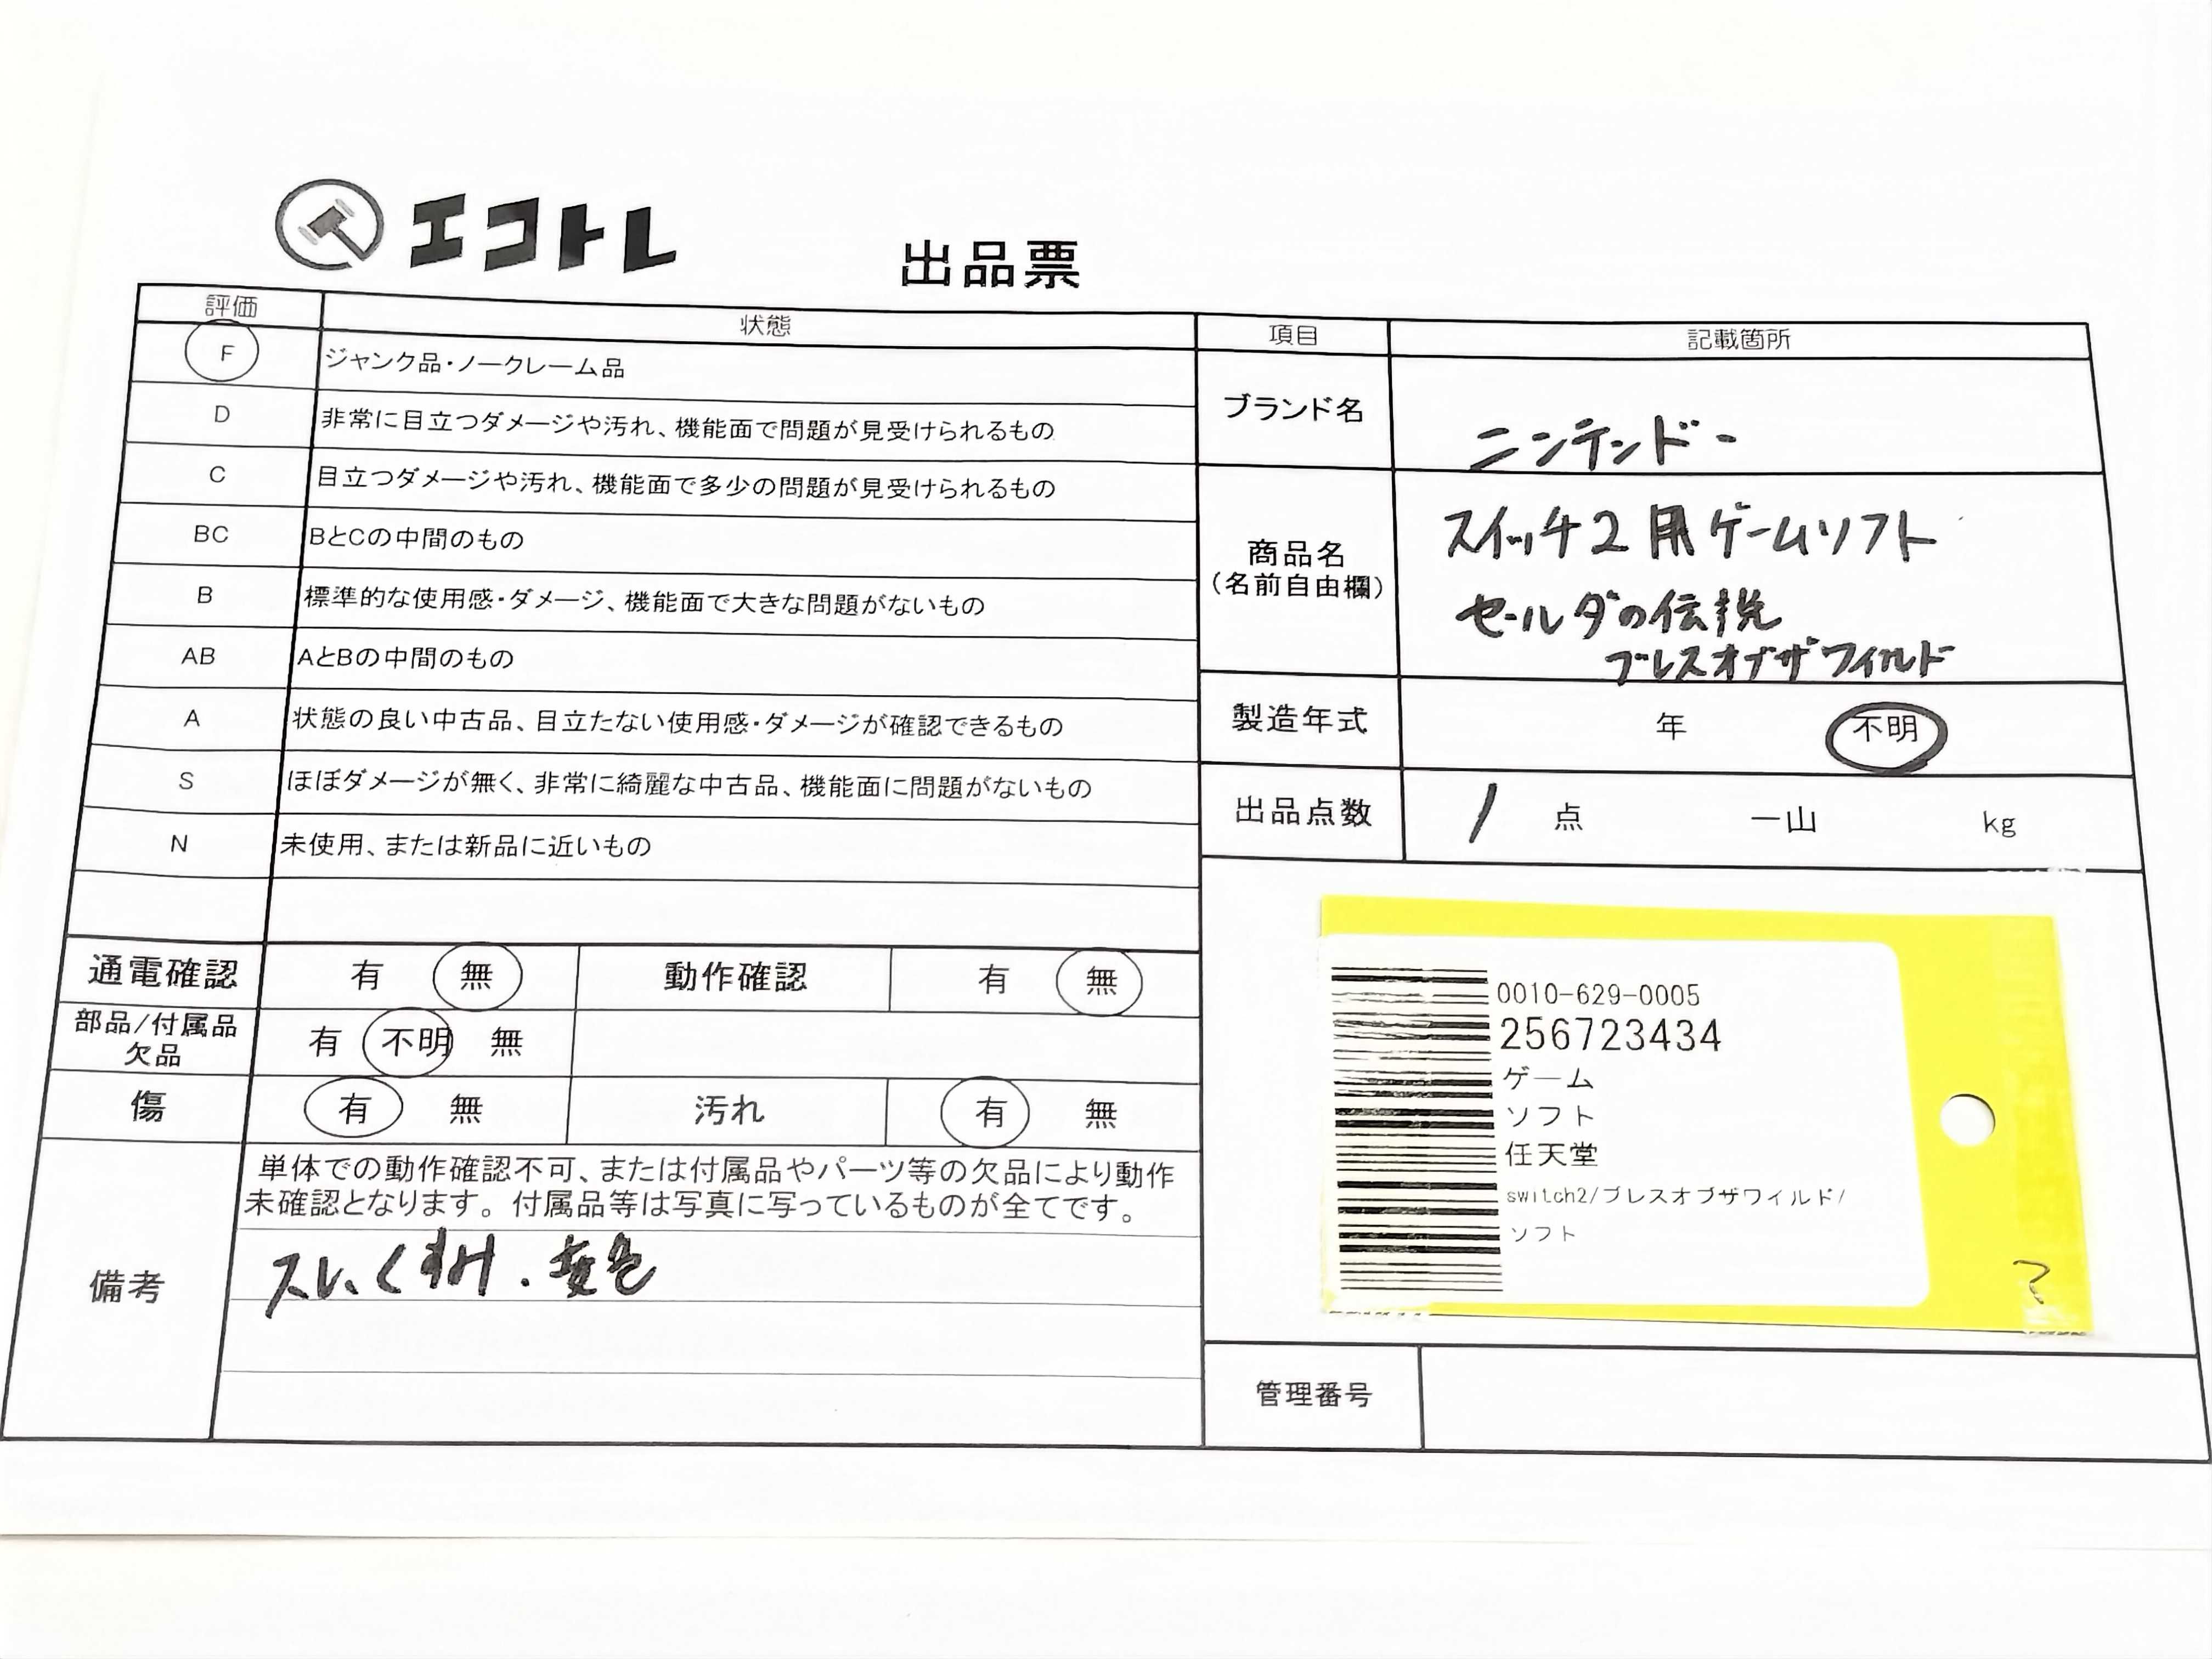 エコトレ
出品票
評価 状態
F ジャンク品・ノークレーム品
D 非常に目立つダメージや汚れ、機能面で問題が見受けられるもの
C 目立つダメージや汚れ、機能面で多少の問題が見受けられるもの
BC BとCの中間のもの
B 標準的な使用感・ダメージ、機能面で大きな問題がないもの
AB AとBの中間のもの
A 状態の良い中古品、目立たない使用感・ダメージが確認できるもの
S ほぼダメージが無く、非常に綺麗な中古品、機能面に問題がないもの
N 未使用、または新品に近いもの
通電確認 有 無 動作確認 有 無
部品/付属品
欠品 有 不明 無
傷 有 無 汚れ 有 無
備考
単体での動作確認不可、または付属品やパーツ等の欠品により動作
未確認となります。付属品等は写真に写っているものが全てです。
スレ、くすみ・変色
項目 記載箇所
ブランド名 ニンテンドー
商品名
(名前自由欄)
スイッチ2用ゲームソフト
セールダの伝説
ブレスオブザフィルド
製造年式 年 不明
出品点数 1 点 一山 kg
0010-629-0005
256723434
ゲーム
ソフト
任天堂
switch2/ブレスオブザワイルド/
ソフト
管理番号